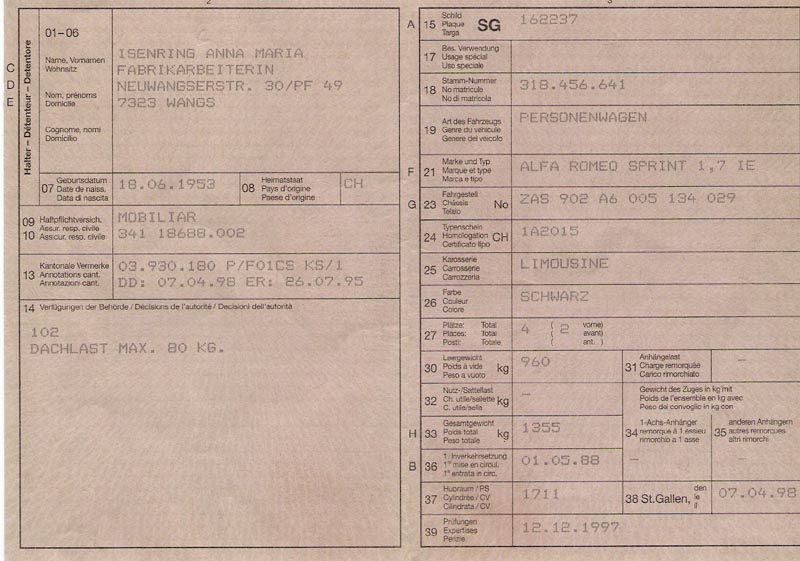 2
3
Halter – Détenteur – Detentore
C
D
E
01–06
Name, Vornamen
Wohnsitz
Nom, prénoms
Domicile
Cognome, nomi
Domicilio
ISENRING ANNA MARIA
FABRIKARBEITERIN
NEUWANGSERSTR. 30/PF 49
7323 WANGS
07 Geburtsdatum
Date de naiss.
Data di nascita
18.06.1953
08 Heimatstaat
Pays d'origine
Paese d'origine
CH
09 Haftpflichtversich.
Assur. resp. civile
10 Assicur. resp. civile
MOBILIAR
341 18688.002
13 Kantonale Vermerke
Annotations cant.
Annotazioni cant.
03.930.180 P/F01CS KS/1
DD: 07.04.98 ER: 26.07.95
14 Verfügungen der Behörde / Décisions de l'autorité / Decisioni dell'autorità
102
DACHLAST MAX. 80 KG.
A 15 Schild
Plaque SG
Targa
162237
17 Bes. Verwendung
Usage spécial
Uso speciale
18 Stamm-Nummer
No matricule
No di matricola
318.456.641
19 Art des Fahrzeugs
Genre du véhicule
Genere del veicolo
PERSONENWAGEN
F 21 Marke und Typ
Marque et type
Marca e tipo
ALFA ROMEO SPRINT 1,7 IE
G 23 Fahrgestell
Châssis No
Telaio
ZAS 902 A6 005 134 029
24 Typenschein
Homologation CH
Certificato tipo
1A2015
25 Karosserie
Carrosserie
Carrozzeria
LIMOUSINE
26 Farbe
Couleur
Colore
SCHWARZ
27 Plätze: Total
Places: Total
Posti: Totale
4 ( 2 vorne)
( avant)
( ant. )
30 Leergewicht
Poids à vide kg
Peso a vuoto
960
31 Anhängelast
Charge remorquée
Carico rimorchiato
–
32 Nutz-/Sattellast
Ch. utile/sellette kg
C. utile/sella
–
Gewicht des Zuges in kg mit
Poids de l'ensemble en kg avec
Peso del convoglio in kg con
H 33 Gesamtgewicht
Poids total kg
Peso totale
1355
34 1-Achs-Anhänger
remorque à 1 essieu
rimorchio a 1 asse
–
35 anderen Anhängern
autres remorques
altri rimorchi
–
B 36 1. Inverkehrsetzung
1re mise en circul.
1a entrata in circ.
01.05.88
37 Hubraum / PS
Cylindrée / CV
Cilindrata / CV
1711
38 St.Gallen, den
le
il
07.04.98
39 Prüfungen
Expertises
Perizie
12.12.1997